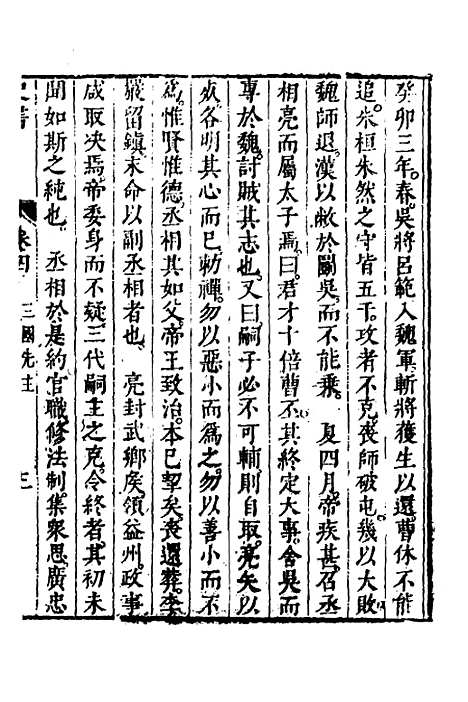 癸卯三年。春。吳將呂範入魏軍。斬將獲生以還。曹休不能
追。朱桓朱然之守皆五千。攻者不克。喪師破屯。幾以大敗
魏師退。漢以敝於嗣吳。而不能乘。　夏四月。帝疾甚。召丞
相亮而屬太子焉。曰。君才十倍曹丕。其終定大事。舍吳而
專於魏。討賊其志也。又曰。嗣子必不可輔。則自取。亮矢以
死。各明其心而已。勑禪。勿以惡小而為之。勿以善小而不
為。惟賢惟德。丞相其如父。帝王致治。本已挈矣。喪還葬。李
嚴留鎮。末命以副丞相者也。　亮封武鄉侯。領益州。政事
咸取决焉。帝委身而不疑。三代嗣主之克。令終者。其初未
聞如斯之純也。　丞相於是約官職。修法制。集衆思。廣忠
卷四　三國先主　三